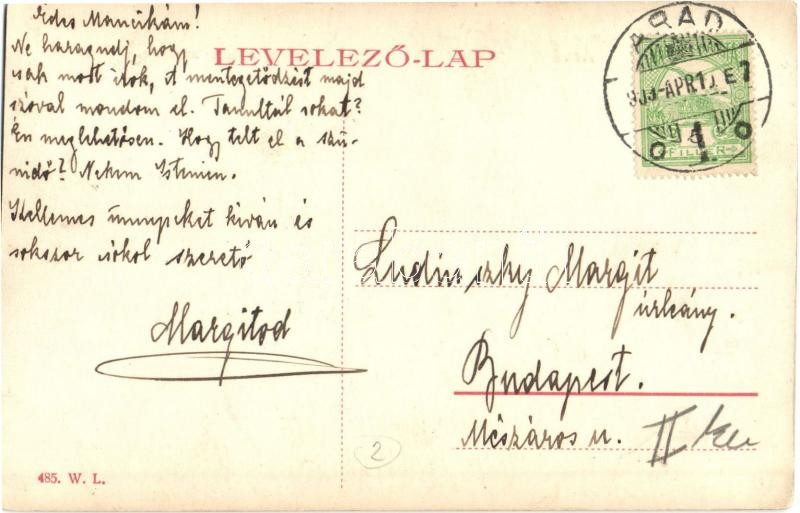 Édes Mancikám!
Ne haragudj, hogy
csak most írok, a mentegetődzést majd
szóval mondom el. Tanultál sokat?
Én meglehetősen. Hogy telt el a szü-
nidő? Nekem Istenien.
Kellemes ünnepeket kíván és
sokszor csókol szerető
Margitod
LEVELEZŐ-LAP
ARAD
APR
FILLÉR
Margit
úrleány.
Budapest.
Mészáros u. II
2
485. W. L.